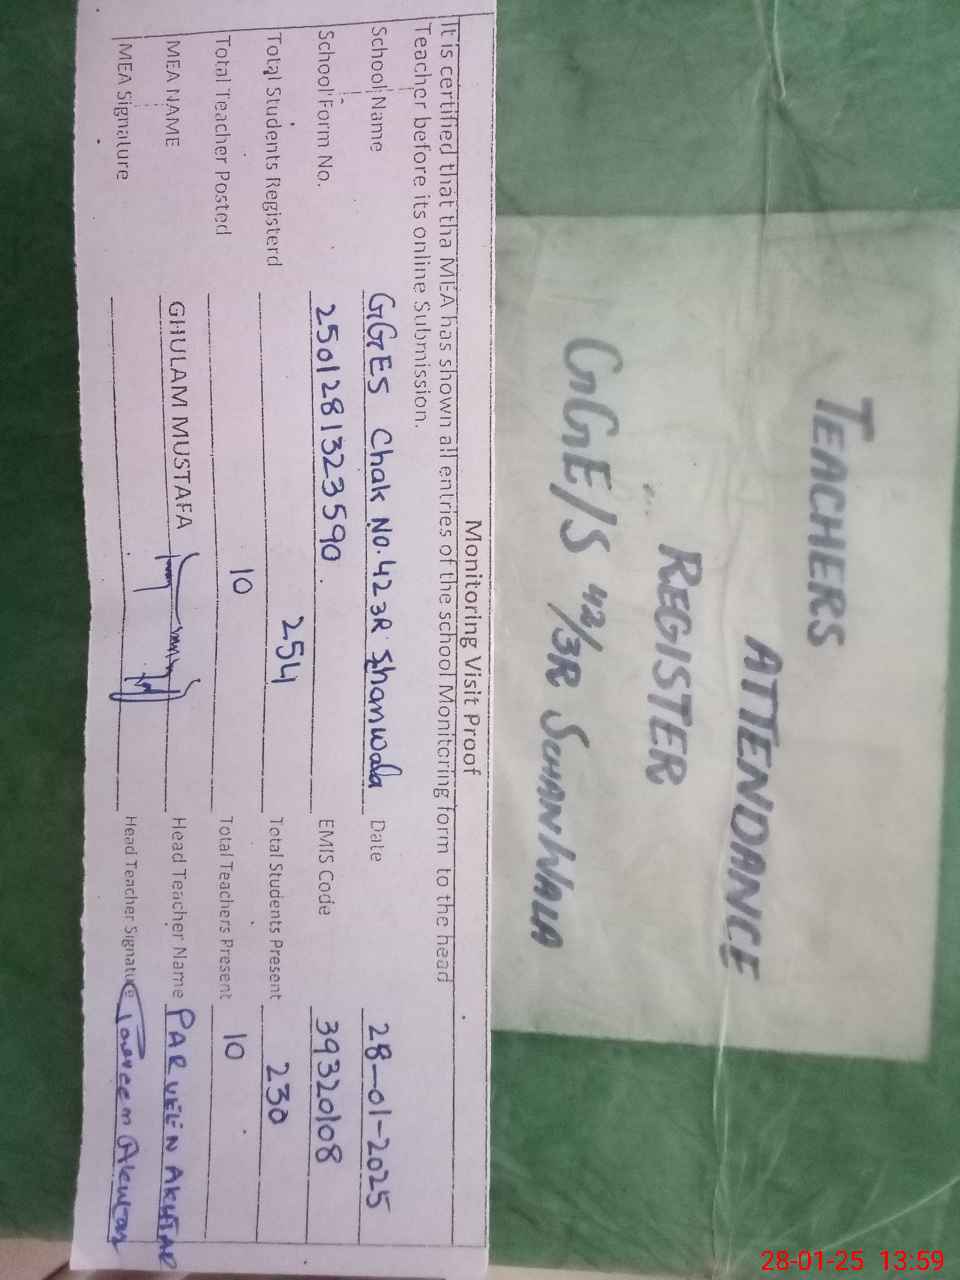 TEACHERS
ATTENDANCE
REGISTER
GGE/S 42/3R SCHANWALA
Monitoring Visit Proof
It is certified that tha MEA has shown all entries of the school Monitoring form to the head
Teacher before its online Submission.
School Name GGES Chak No. 42 3R Shanwala Date 28-01-2025
School Form No. 250128132359 0. EMIS Code 39320108
Total Students Registerd 254 Total Students Present 230
Total Teacher Posted 10 Total Teachers Present 10
MEA NAME GHULAM MUSTAFA Head Teacher Name PARVEEN AKHTAR
MEA Signature Head Teacher Signature Parveen Akhtar
28-01-25 13:59